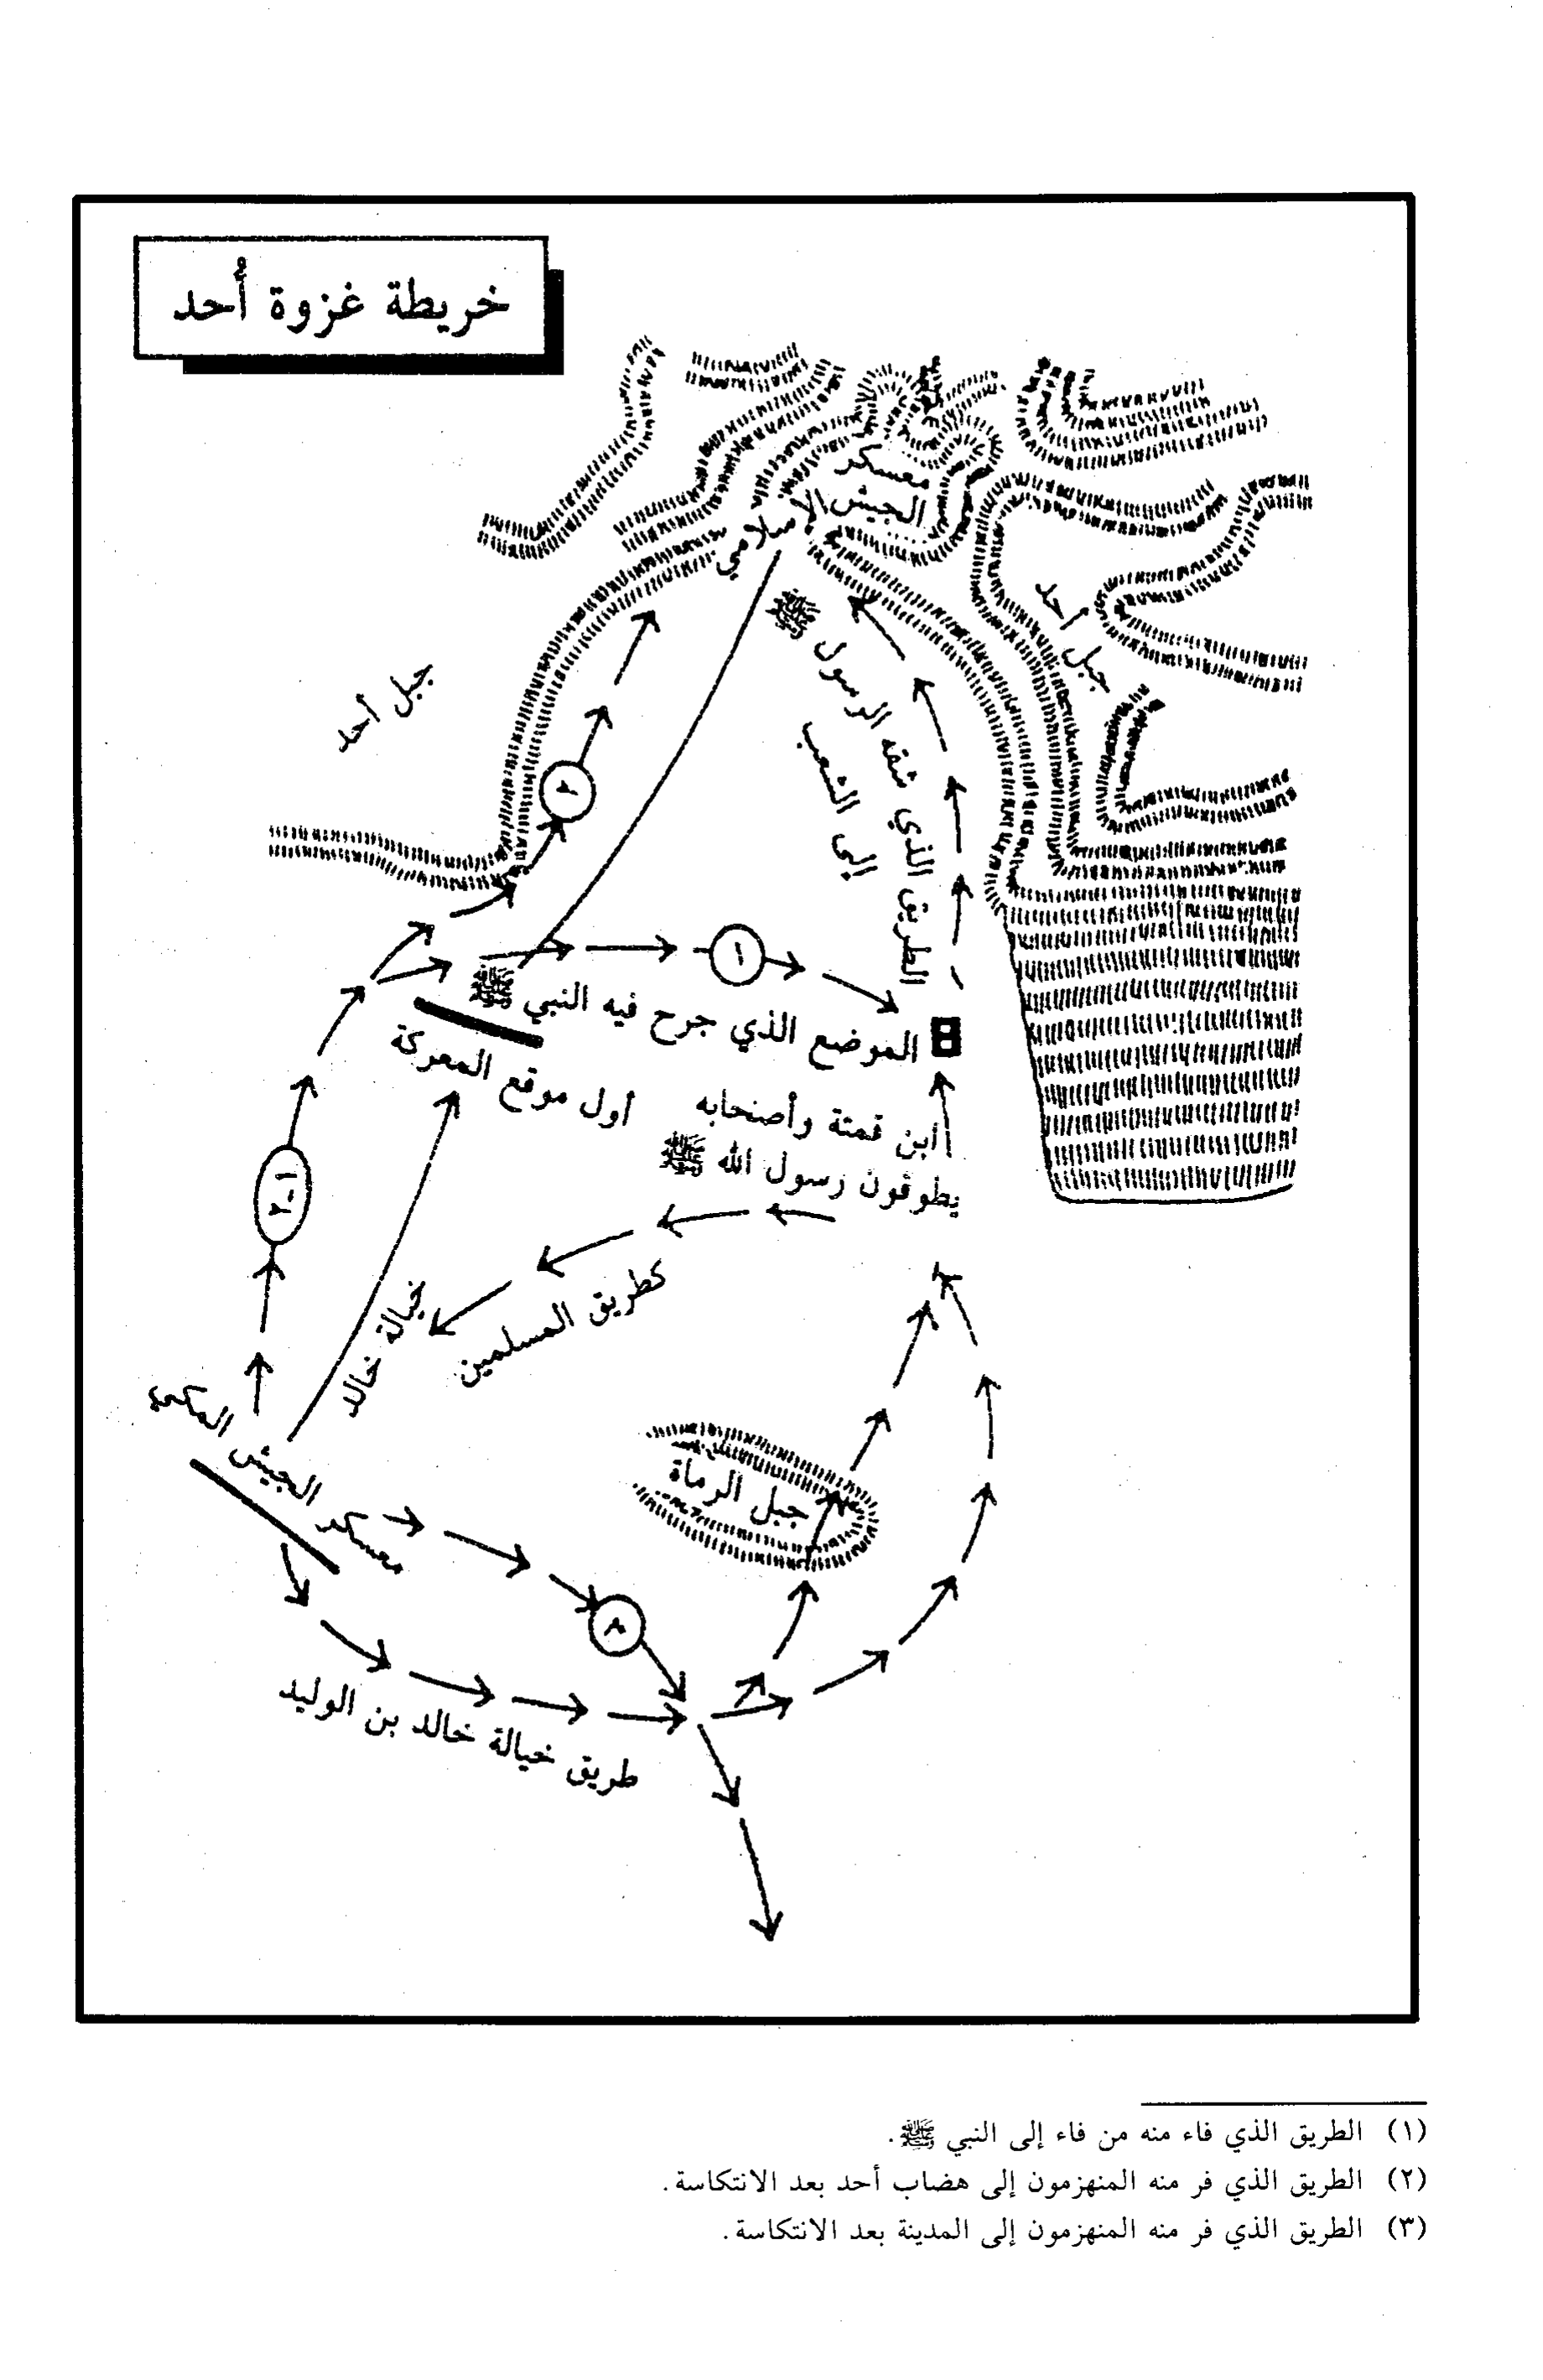 خريطة غزوة أُحد
معسكر
الجيش الإسلامي
جبل أحد
جبل أحد
ﷺ
الطريق الذي شقه الرسول ﷺ
إلى الشعب
٢
١
الموضع الذي جرح فيه النبي ﷺ
أول موقع المعركة
ابن قمئة وأصحابه
يطوقون رسول الله ﷺ
١-٢
خيالة خالد
كطريق المسلمين
معسكر الجيش المكي
جبل الرماة
طريق خيالة خالد بن الوليد
(١) الطريق الذي فاء منه من فاء إلى النبي ﷺ.
(٢) الطريق الذي فر منه المنهزمون إلى هضاب أحد بعد الانتكاسة.
(٣) الطريق الذي فر منه المنهزمون إلى المدينة بعد الانتكاسة.